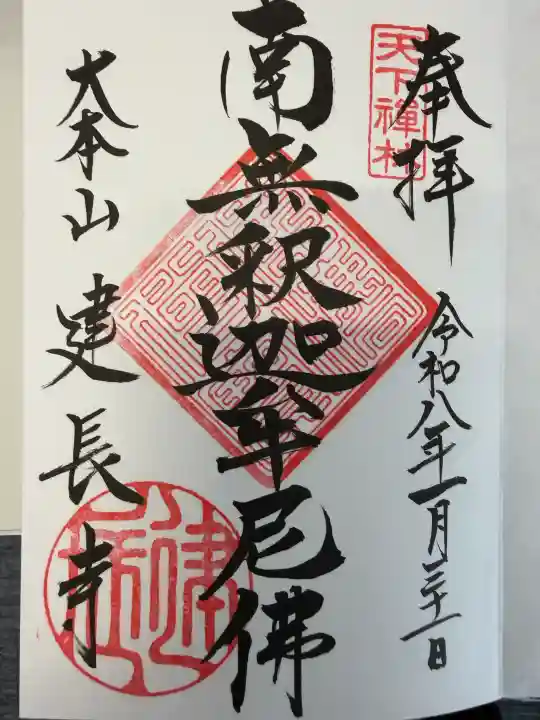 奉拝
天下禅林
令和八年一月三十一日
南無釈迦牟尼佛
大本山 建長寺